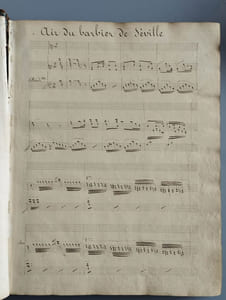 Air du barbier de Séville